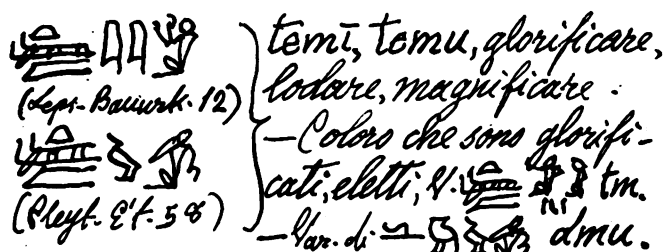 (Leps. Bauurk. 12)
(Pleyt. Ét. 58)
temī, temu, glorificare,
lodare, magnificare.
— Coloro che sono glorifi-
cati, eletti, V. tm.
— Var. di dmu.